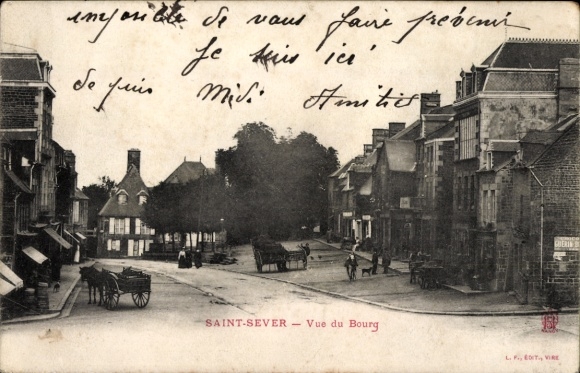 impossible de vous faire prévenir
Je suis ici
depuis Midi Amitiés
SAINT-SEVER — Vue du Bourg
L. P., ÉDIT., VIRE